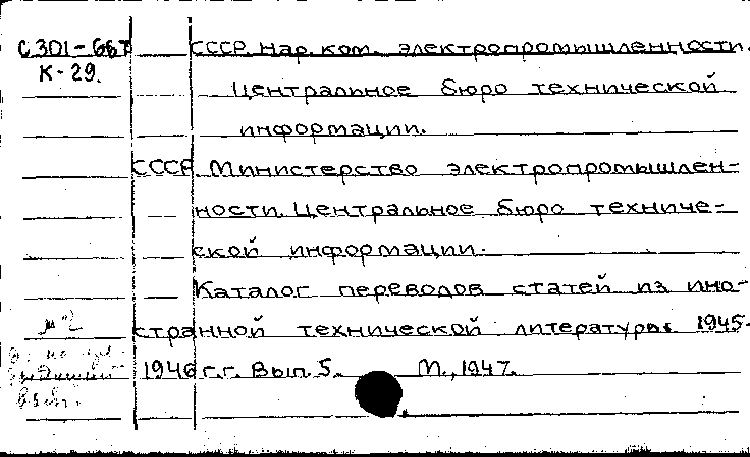 С301-667 СССР. Нар. ком. электропромышленности.
К-29. Центральное бюро технической
информации.
СССР. Министерство электропромышлен-
ности. Центральное бюро техниче-
ской информации.
Каталог переводов статей из ино-
странной технической литературы. 1945-
1946 г.г. Вып. 5. М., 1947.